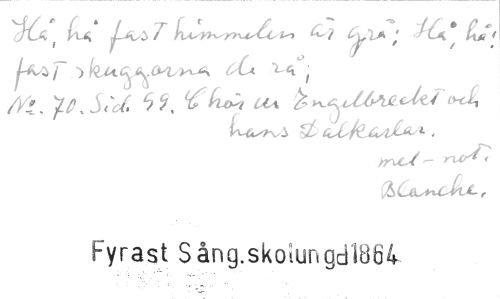 Hå, hå fast himmelen är grå; Hå, hå!
fast skuggorna de rå;
No. 70. Sid. 99. Chör ur Engelbreckt och
hans Dalkarlar.
mel-not.
Blanche.
Fyrast Sång.skolungd1864